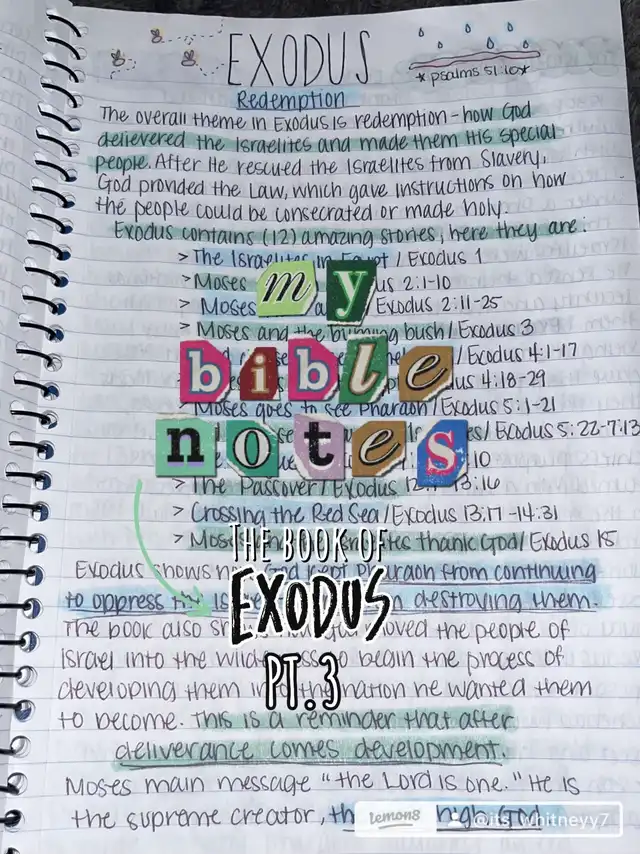 EXODUS
*psalms 51:10*
Redemption
The overall theme in Exodus is redemption - how God
delievered the Israelites and made them His special
people. After He rescued the Israelites from Slavery,
God provided the Law, which gave instructions on how
the people could be consecrated or made holy.
Exodus contains (12) amazing stories, here they are:
> The Israelites in Egypt / Exodus 1
> Moses 2:1-10
> Moses Exodus 2:11-25
> Moses and the burning bush / Exodus 3
/ Exodus 4:1-17
4:18-29
> Moses goes to see Pharaoh / Exodus 5:1-21
/ Exodus 5:22-7:13
10
> The Passover / Exodus 13:16
> Crossing the Red Sea / Exodus 13:17-14:31
> Moses thank God / Exodus 15
my
bible
notes
THE BOOK OF
EXODUS
PT.3
Exodus shows God kept Pharaoh from continuing
to oppress destroying them.
The book also moved the people of
Israel into the to begin the process of
developing them the nation he wanted them
to become. This is a reminder that after
deliverance comes development.
Moses main message "the Lord is one." He is
the supreme creator, high God
lemon8 @its_whitneyy7